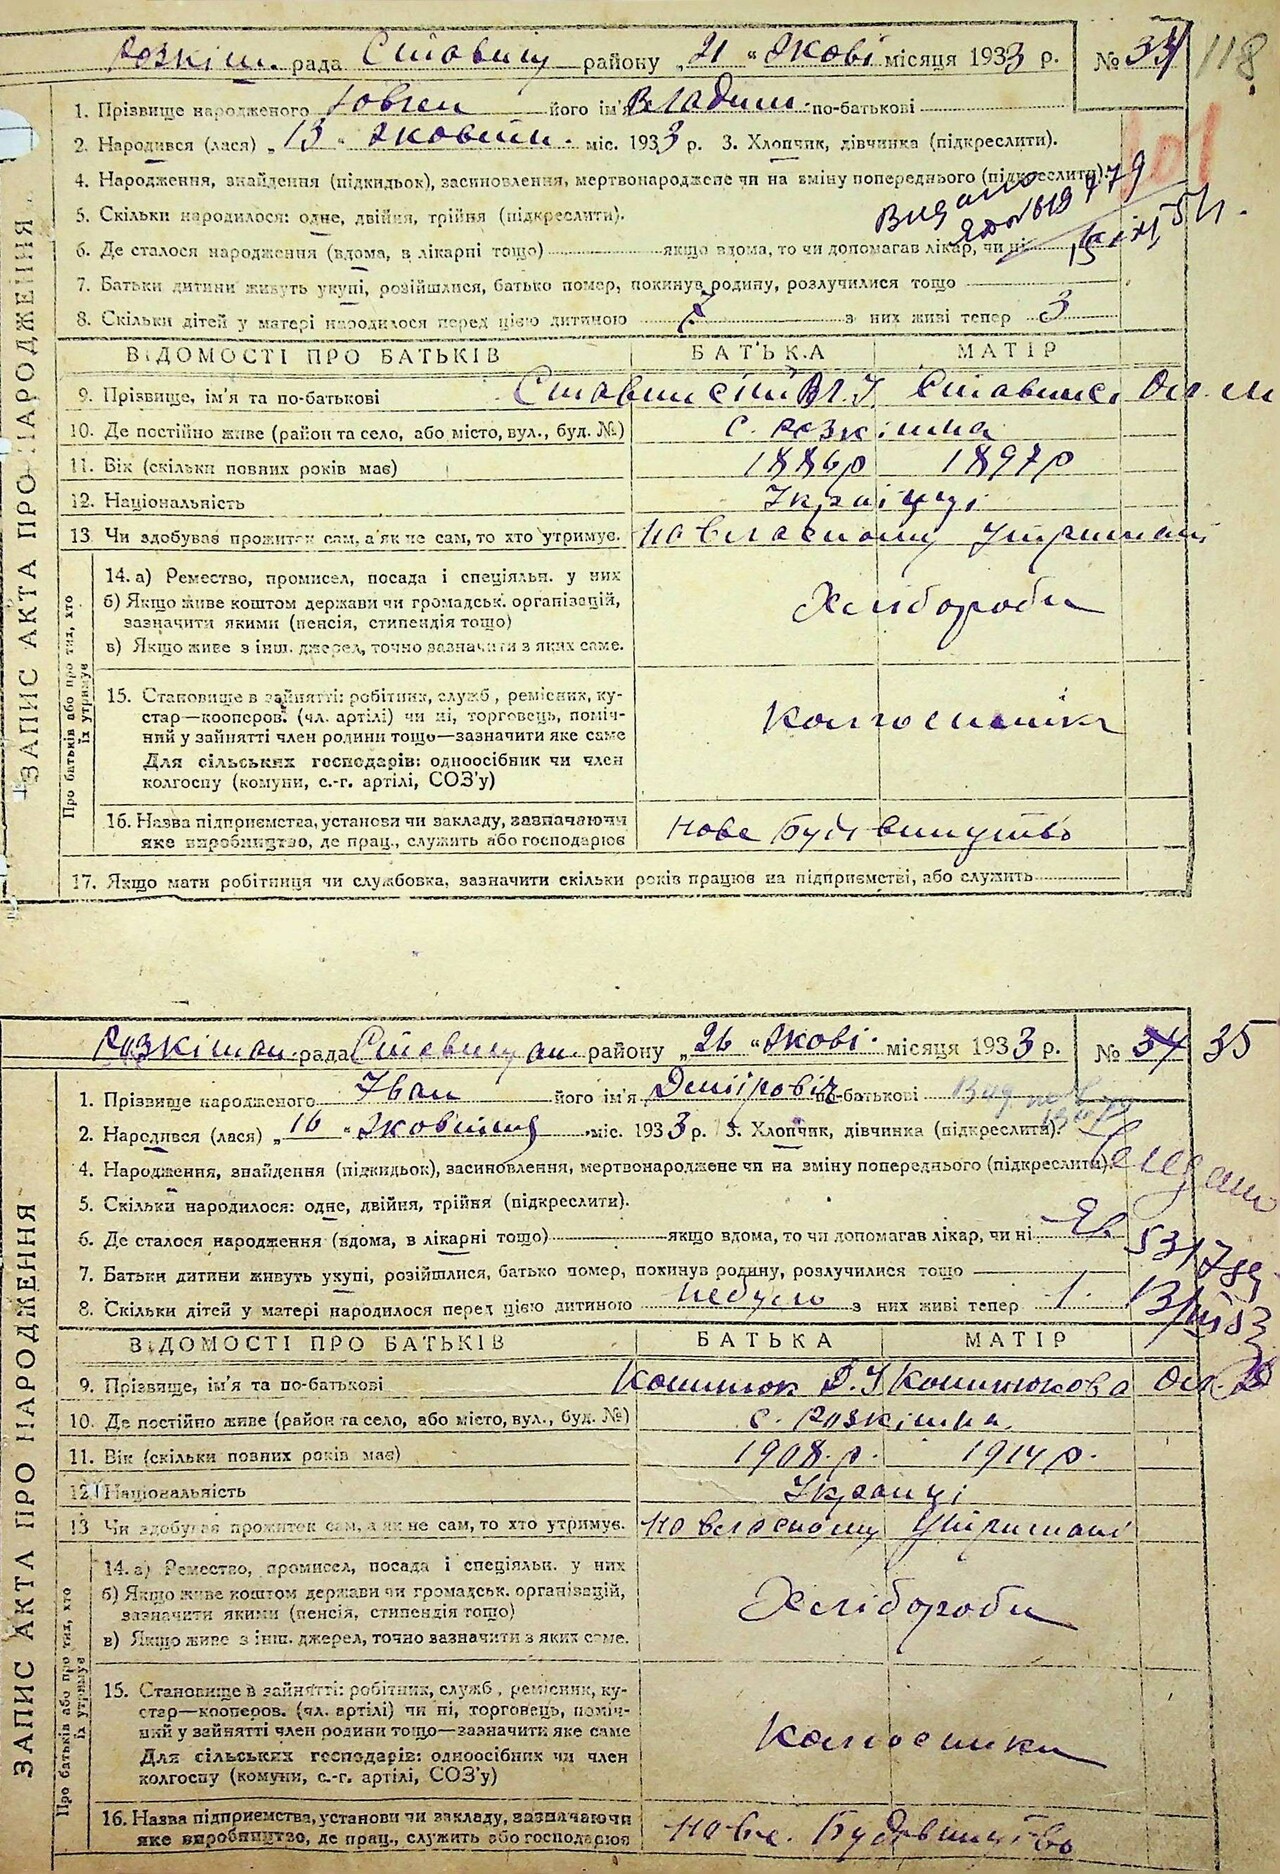 Розкіш. рада Ставищ району „21 “ Жовт місяця 1933 р. № 34 118
101
1. Прізвище народженого його ім'я Владим. по-батькові
2. Народився (лася) „13 “ Жовтн. міс. 1933 р. 3. Хлопчик, дівчинка (підкреслити).
4. Народження, знайдення (підкидьок), засиновлення, мертвонароджене чи на зміну попереднього (підкреслити).
Видано
5. Скільки народилося: одне, двійня, трійня (підкреслити).
6. Де сталося народження (вдома, в лікарні тощо) якщо вдома, то чи допомагав лікар, чи ні
7. Батьки дитини живуть укупі, розійшлися, батько помер, покинув родину, розлучилися тощо
8. Скільки дітей у матері народилося перед цією дитиною 7 з них живі тепер 3
ВІДОМОСТІ ПРО БАТЬКІВ БАТЬКА МАТІР
9. Прізвище, ім'я та по-батькові
10. Де постійно живе (район та село, або місто, вул., буд. №) с. Розкішна
11. Вік (скільки повних років має) 1886р 1897р
12. Національність Українці
13. Чи здобуває прожиток сам, а як не сам, то хто утримує. На власному утриманні
14. а) Ремество, промисел, посада і спеціяльн. у них
б) Якщо живе коштом держави чи громадськ. організацій,
зазначити якими (пенсія, стипендія тощо)
в) Якщо живе з інш. джерел, точно зазначити з яких саме.
Хлібороби
15. Становище в зайнятті: робітник, служб., ремісник, ку-
стар—кооперов. (чл. артілі) чи ні, торговець, поміч-
ний у зайнятті член родини тощо—зазначити яке саме
Для сільських господарів: одноосібник чи член
колгоспу (комуни, с.-г. артілі, СОЗ'у)
16. Назва підприємства, установи чи закладу, зазначаючи
яке виробництво, де прац., служить або господарює
Нове Будівництво
17. Якщо мати робітниця чи службовка, зазначити скільки років працює на підприємстві, або служить
ЗАПИС АКТА ПРО НАРОДЖЕННЯ
Про батьків або про тих, хто
їх утримує
Розкішан. рада Ставищан району „26 “ Жовт. місяця 1933 р. № 34 35
1. Прізвище народженого Іван його ім'я Дмитрович по-батькові
2. Народився (лася) „16 “ Жовтня міс. 1933 р. 3. Хлопчик, дівчинка (підкреслити).
4. Народження, знайдення (підкидьок), засиновлення, мертвонароджене чи на зміну попереднього (підкреслити).
5. Скільки народилося: одне, двійня, трійня (підкреслити).
6. Де сталося народження (вдома, в лікарні тощо) якщо вдома, то чи допомагав лікар, чи ні
7. Батьки дитини живуть укупі, розійшлися, батько помер, покинув родину, розлучилися тощо
8. Скільки дітей у матері народилося перед цією дитиною небуло з них живі тепер 1.
ВІДОМОСТІ ПРО БАТЬКІВ БАТЬКА МАТІР
9. Прізвище, ім'я та по-батькові
10. Де постійно живе (район та село, або місто, вул., буд. №) с. Розкішна
11. Вік (скільки повних років має) 1908. р. 1914 р.
12. Національність Українці
13 Чи здобуває прожиток сам, а як не сам, то хто утримує. На власному утриманні
14. а) Ремество, промисел, посада і спеціяльн. у них
б) Якщо живе коштом держави чи громадськ. організацій,
зазначити якими (пенсія, стипендія тощо)
в) Якщо живе з інш. джерел, точно зазначити з яких саме.
Хлібороби
15. Становище в зайнятті: робітник, служб., ремісник, ку-
стар—кооперов. (чл. артілі) чи ні, торговець, поміч-
ний у зайнятті член родини тощо—зазначити яке саме
Для сільських господарів: одноосібник чи член
колгоспу (комуни, с.-г. артілі, СОЗ'у)
16. Назва підприємства, установи чи закладу, зазначаючи
яке виробництво, де прац., служить або господарює
Будівництво
ЗАПИС АКТА ПРО НАРОДЖЕННЯ
Про батьків або про тих, хто
їх утримує